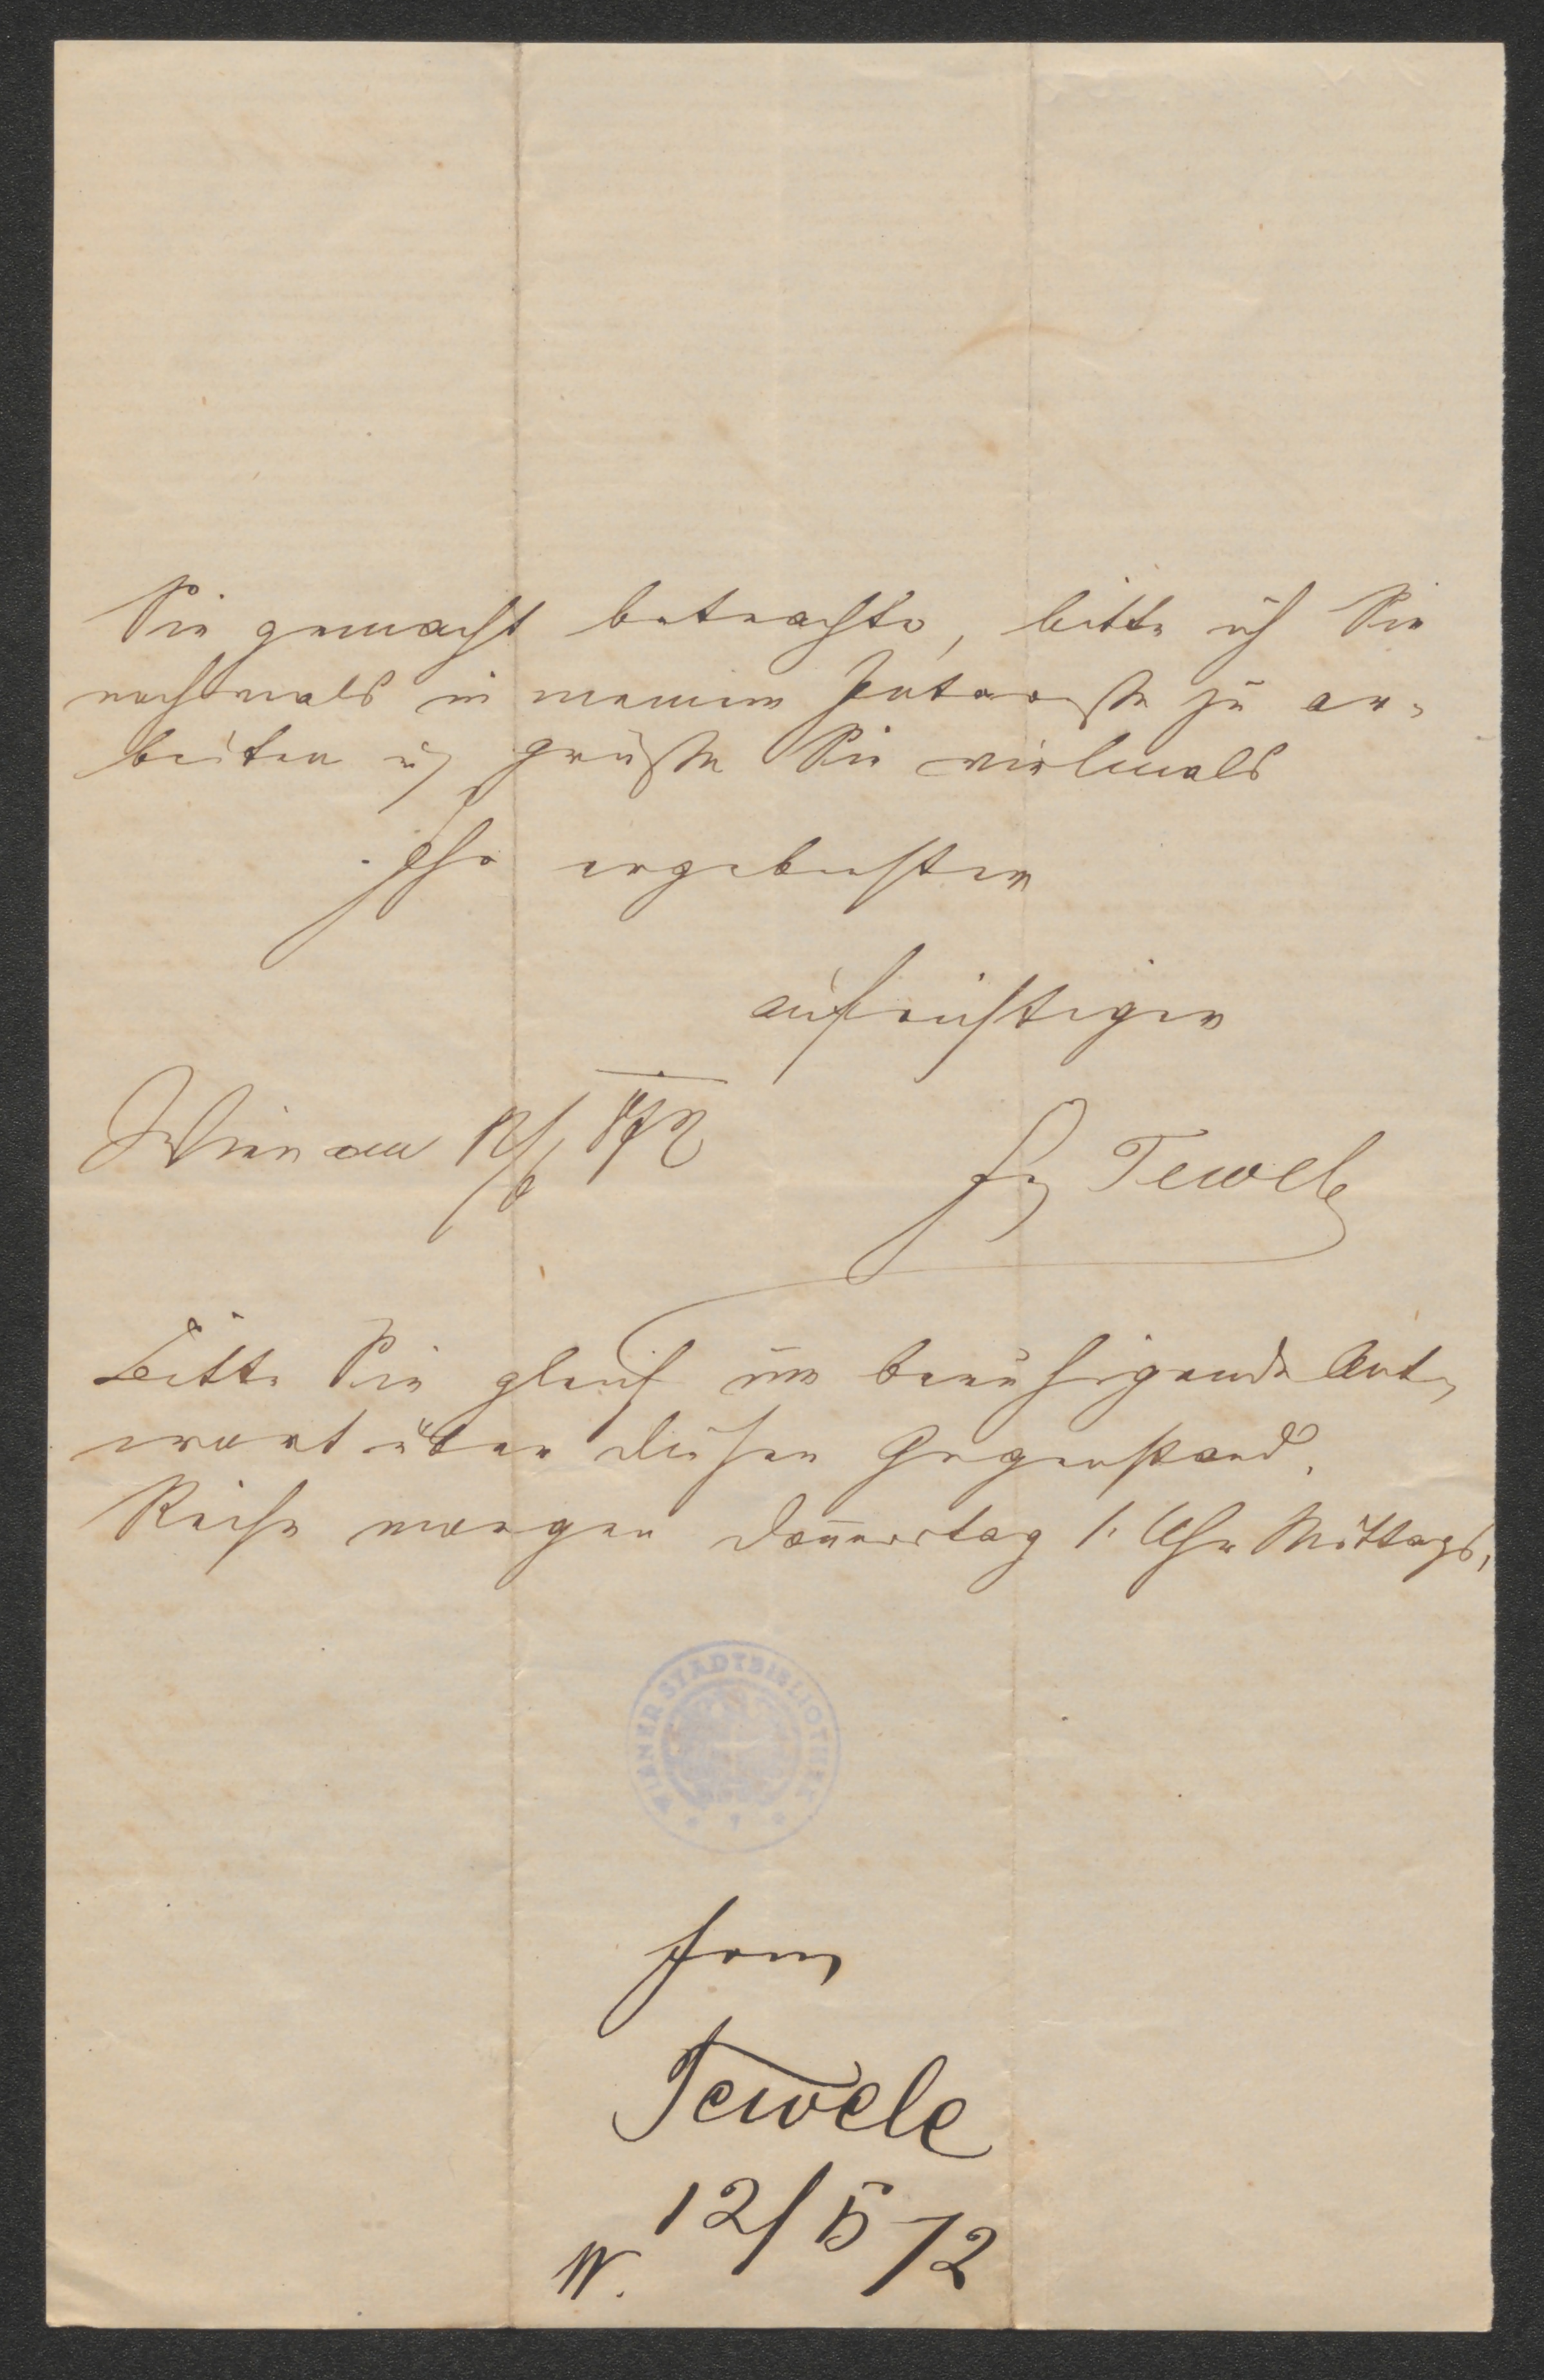 Sie gemacht betrachte, bitte ich Sie
nochmals in meinem Interesse zu ar-
beiten u. grüße Sie vielmals
Ihr ergebenster
aufrichtiger
Wien am 12/5 1872
Fz Tewele
Bitte Sie gleich um beruhigende Ant-
wort über diesen Gegenstand.
Reise morgen Donnerstag 1. Uhr Mittags,
WIENER STADTBIBLIOTHEK
Franz
Tewele
12/5 72
W.